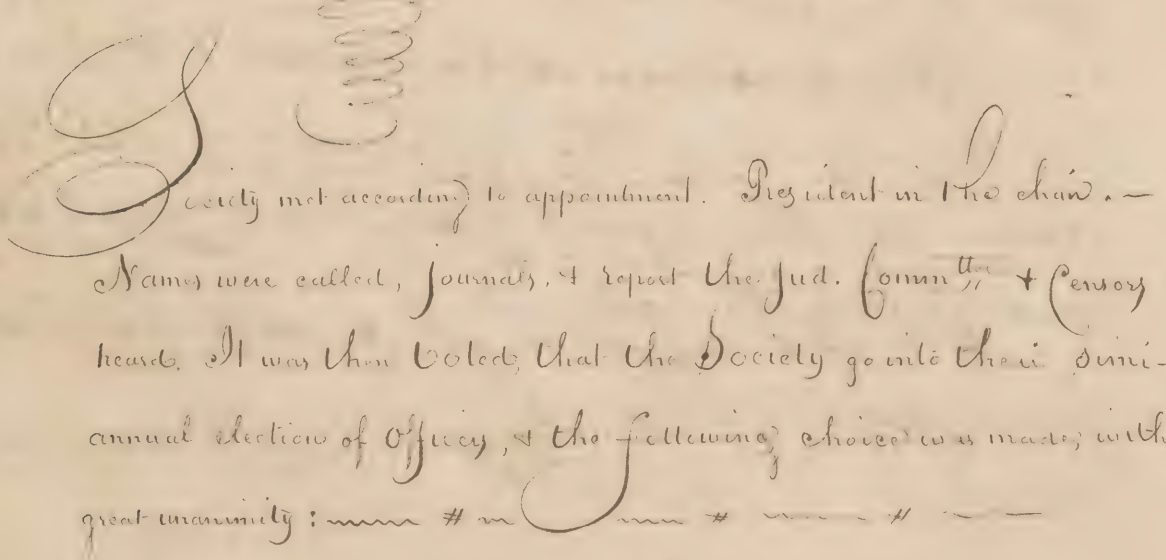 Society met according to appointment. President in the chair. —
Names were called, Journals, & report the Jud. Committee & Censors
heard. It was then Voted, that the Society go into their simi-
annual election of Officers, & the following choice was made, with
great unanimity :